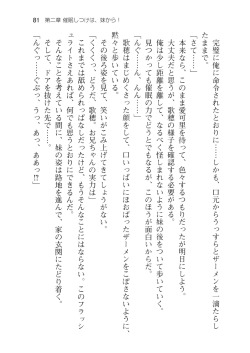 81　第二章 催眠しつけは、妹から！
完璧に俺に命令されたとおりに……しかも、口元からうっすらとザーメンを一滴たらし
たままで。
「さて……」
本来なら、このまま愛可里を待って、色々するつもりだったが明日にしよう。
大丈夫だと思うが、歌穂の様子を確認する必要がある。
俺は少し距離を離して、ばれないように妹の後をついて歩いていく。
見つかっても催眠の力でどうにでもなるが、このほうが面白いからだ。
「んぐ……ん、んん……」
歌穂はまじめくさった顔をして、口いっぱいにほおばったザーメンをこぼさないように、
黙々と歩いている。
その後ろ姿を見て、笑いがこみ上げてきてしょうがない。
「くくくっ、どうだ、歌穂、お兄ちゃんの実力は」
これまでは舐められっぱなしだったけど、もうそんなことにはならない。このフラッシ
ュライトさえあれば、何でも思うとおりにできるんだ。
そんなことを考えている間に、妹の姿は路地を進んで、家の玄関にたどり着く。
そして、ドアを抜けた先で。
「んぐっ……ぐぷっ、うっ、あっ、ああっ!!」